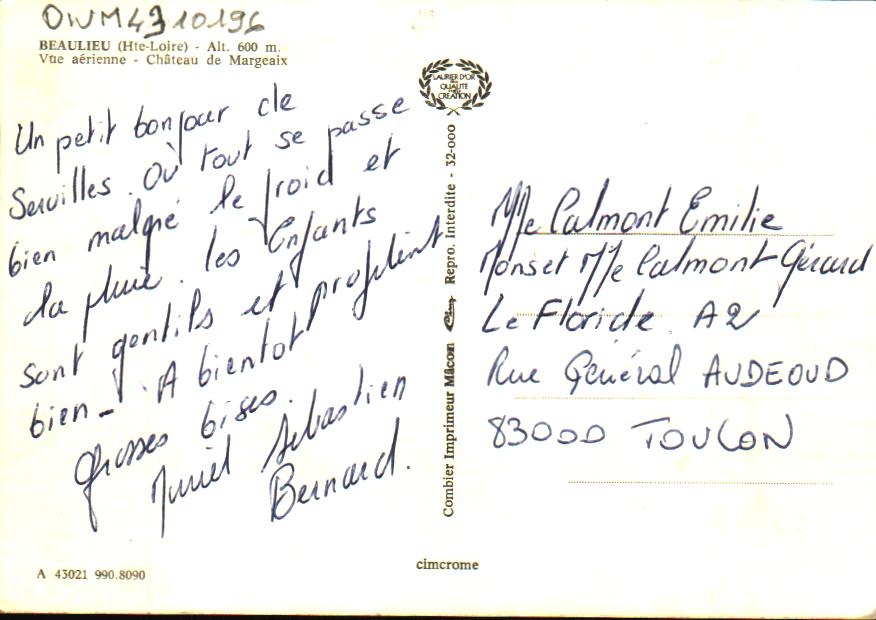 OWM4310196
BEAULIEU (Hte-Loire) - Alt. 600 m.
Vue aérienne - Château de Margeaix
LAURIER D'OR
DE LA
QUALITÉ
CRÉATION
Un petit bonjour de
Servilles. Où tout se passe
bien malgré le froid et
la pluie. les Enfants
sont gentils et profitent
bien - A bientot
grosses bises.
Muriel Sebastien
Bernard.
Combier Imprimeur Mâcon Cim Repro. Interdite - 32-000
Mme Calmont Emilie
Mons et Mme Calmont Gérard
Le Floride A2
Rue Général AUDEOUD
83000 TOULON
A 43021 990.8090
cimcrome